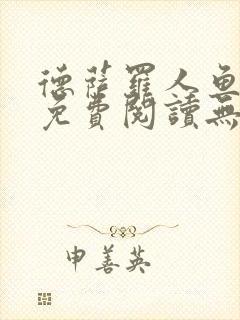 德薩羅人魚
免費閱讀無
申善英